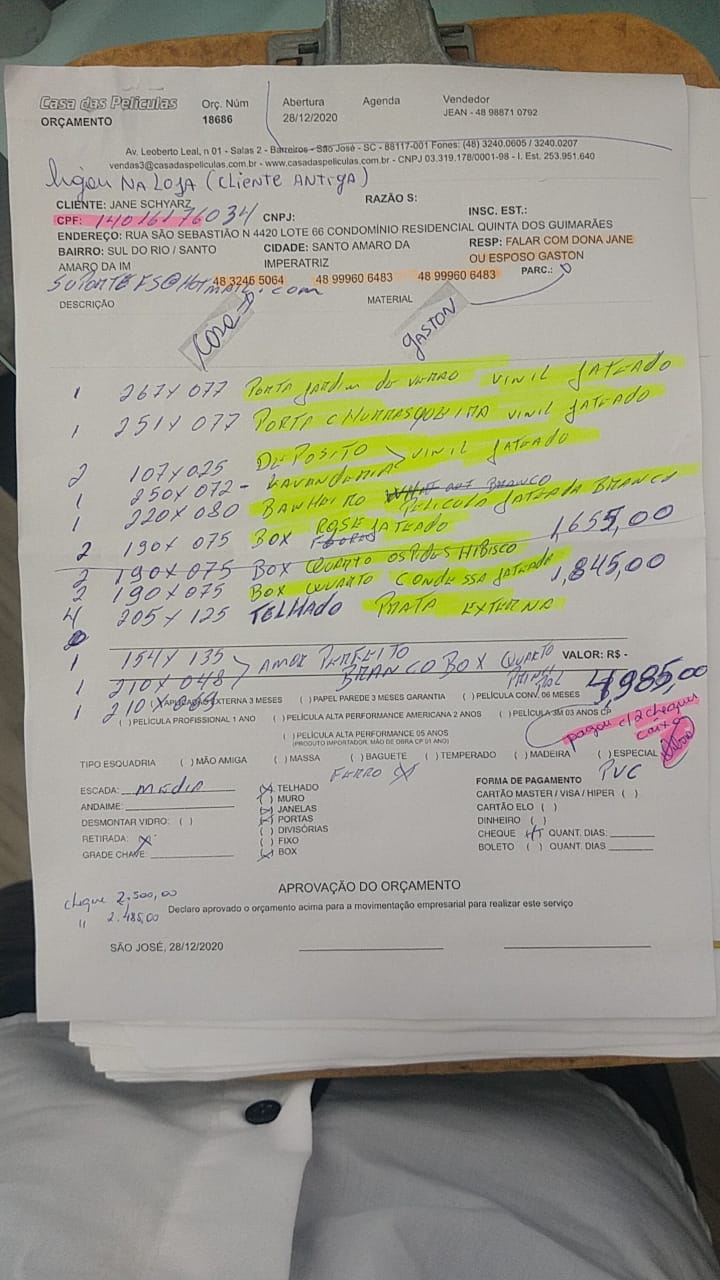 Casa das Películas
ORÇAMENTO
Orç. Núm
18686
Abertura
28/12/2020
Agenda
Vendedor
JEAN - 48 98871 0792
Av. Leoberto Leal, n 01 - Salas 2 - Barreiros - São José - SC - 88117-001 Fones: (48) 3240.0605 / 3240.0207
vendas3@casadaspeliculas.com.br - www.casadaspeliculas.com.br - CNPJ 03.319.178/0001-98 - I. Est. 253.951.640
ligou NA LOJA (CLIENTE ANTIGA)
CLIENTE: JANE SCHYARZ
RAZÃO S:
CPF: 14016176034
CNPJ:
INSC. EST.:
ENDEREÇO: RUA SÃO SEBASTIÃO N 4420 LOTE 66 CONDOMÍNIO RESIDENCIAL QUINTA DOS GUIMARÃES
BAIRRO: SUL DO RIO / SANTO
AMARO DA IM
CIDADE: SANTO AMARO DA
IMPERATRIZ
RESP: FALAR COM DONA JANE
OU ESPOSO GASTON
48 3245 5064 48 99960 6483 48 99960 6483
PARC.:
@Hotmail.com
DESCRIÇÃO
MATERIAL
GASTON
1 267X077 PORTA JARDIM DE VERÃO VINIL JATEADO
1 251X077 PORTA CHURRASQUEIRA VINIL JATEADO
2 107X025 DEPOSITO
1 250X072 - LAVANDERIA VINIL JATEADO
1 220X080 BANHEIRO BRANCO PELICULA JATEADA BRANCO
2 190X 075 BOX ROSE JATEADO 1,655,00
2 190X075 BOX QUARTO HIBISCO
2 190X075 BOX QUARTO JATEADA 1,845,00
4 205X125 TELHADO PRATA EXTERNA
1 154X135 AMOR PERFEITO
1 210X048 BRANCO BOX QUARTO
VALOR: R$ -
4985,00
1 210X
EXTERNA 3 MESES ( ) PAPEL PAREDE 3 MESES GARANTIA ( ) PELÍCULA CONV. 06 MESES
( ) PELÍCULA PROFISSIONAL 1 ANO ( ) PELÍCULA ALTA PERFORMANCE AMERICANA 2 ANOS ( ) PELÍCULA 3M 03 ANOS CP
pagou c/2 cheques
( ) PELÍCULA ALTA PERFORMANCE 05 ANOS
(PRODUTO IMPORTADOR, MÃO DE OBRA CP 01 ANO)
TIPO ESQUADRIA ( ) MÃO AMIGA ( ) MASSA ( ) BAGUETE ( ) TEMPERADO ( ) MADEIRA ( ) ESPECIAL
FERRO X
PVC
ESCADA: MEDIA
ANDAIME:
DESMONTAR VIDRO: ( )
RETIRADA: X
GRADE CHAVE
(X) TELHADO
( ) MURO
(X) JANELAS
(X) PORTAS
( ) DIVISÓRIAS
( ) FIXO
(X) BOX
FORMA DE PAGAMENTO
CARTÃO MASTER / VISA / HIPER ( )
CARTÃO ELO ( )
DINHEIRO ( )
CHEQUE (X) QUANT. DIAS:
BOLETO ( ) QUANT. DIAS
APROVAÇÃO DO ORÇAMENTO
cheque 2.500,00
" 2.485,00
Declaro aprovado o orçamento acima para a movimentação empresarial para realizar este serviço
SÃO JOSÉ, 28/12/2020